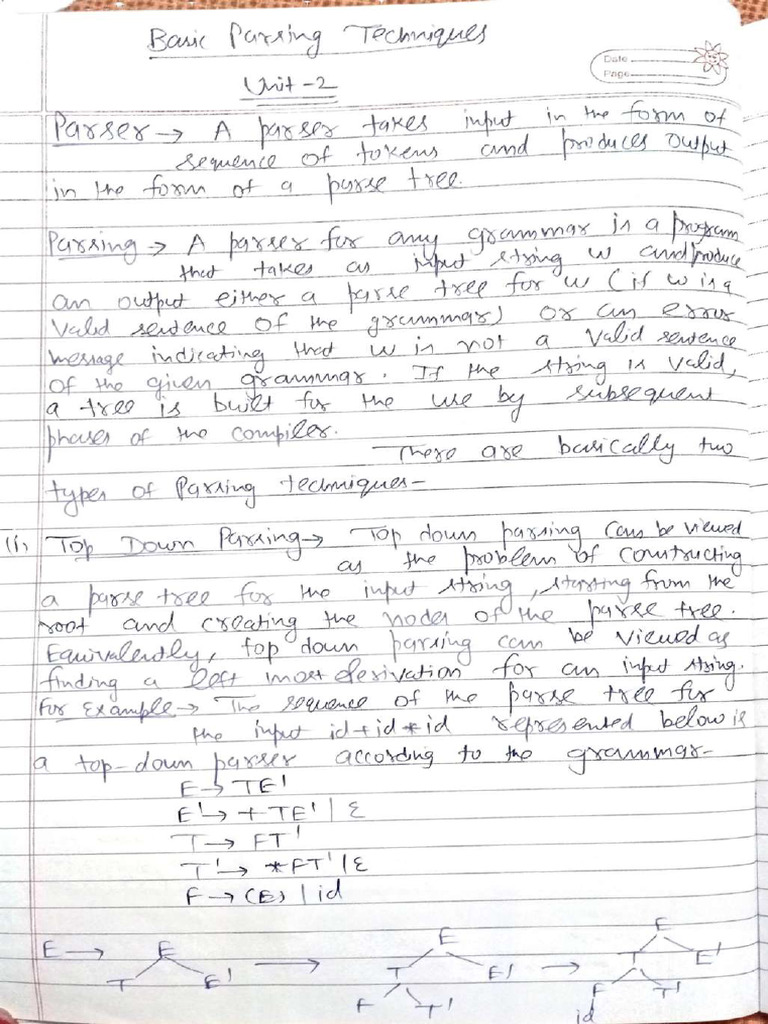 Basic Parsing Techniques
Date
Page
Unit-2
Parser → A parser takes input in the form of
sequence of tokens and produces output
in the form of a parse tree.
Parsing → A parser for any grammar is a program
that takes as input string w and produce
an output either a parse tree for w (if w is a
valid sentence of the grammar) or an error
message indicating that w is not a valid sentence
of the given grammar. If the string is valid,
a tree is built for the use by subsequent
phases of the compiler.
There are basically two
types of Parsing techniques-
(i) Top Down Parsing → Top down parsing can be viewed
as the problem of constructing
a parse tree for the input string, starting from the
root and creating the nodes of the parse tree.
Equivalently, top down parsing can be viewed as
finding a left most derivation for an input string.
For Example → The sequence of the parse tree for
the input id+id*id represented below is
a top-down parser according to the grammar-
E → TE'
E' → +TE' | ε
T → FT'
T' → *FT' | ε
F → (E) | id
E → E → E → E
T E' T E' T E'
F T' F T'
id